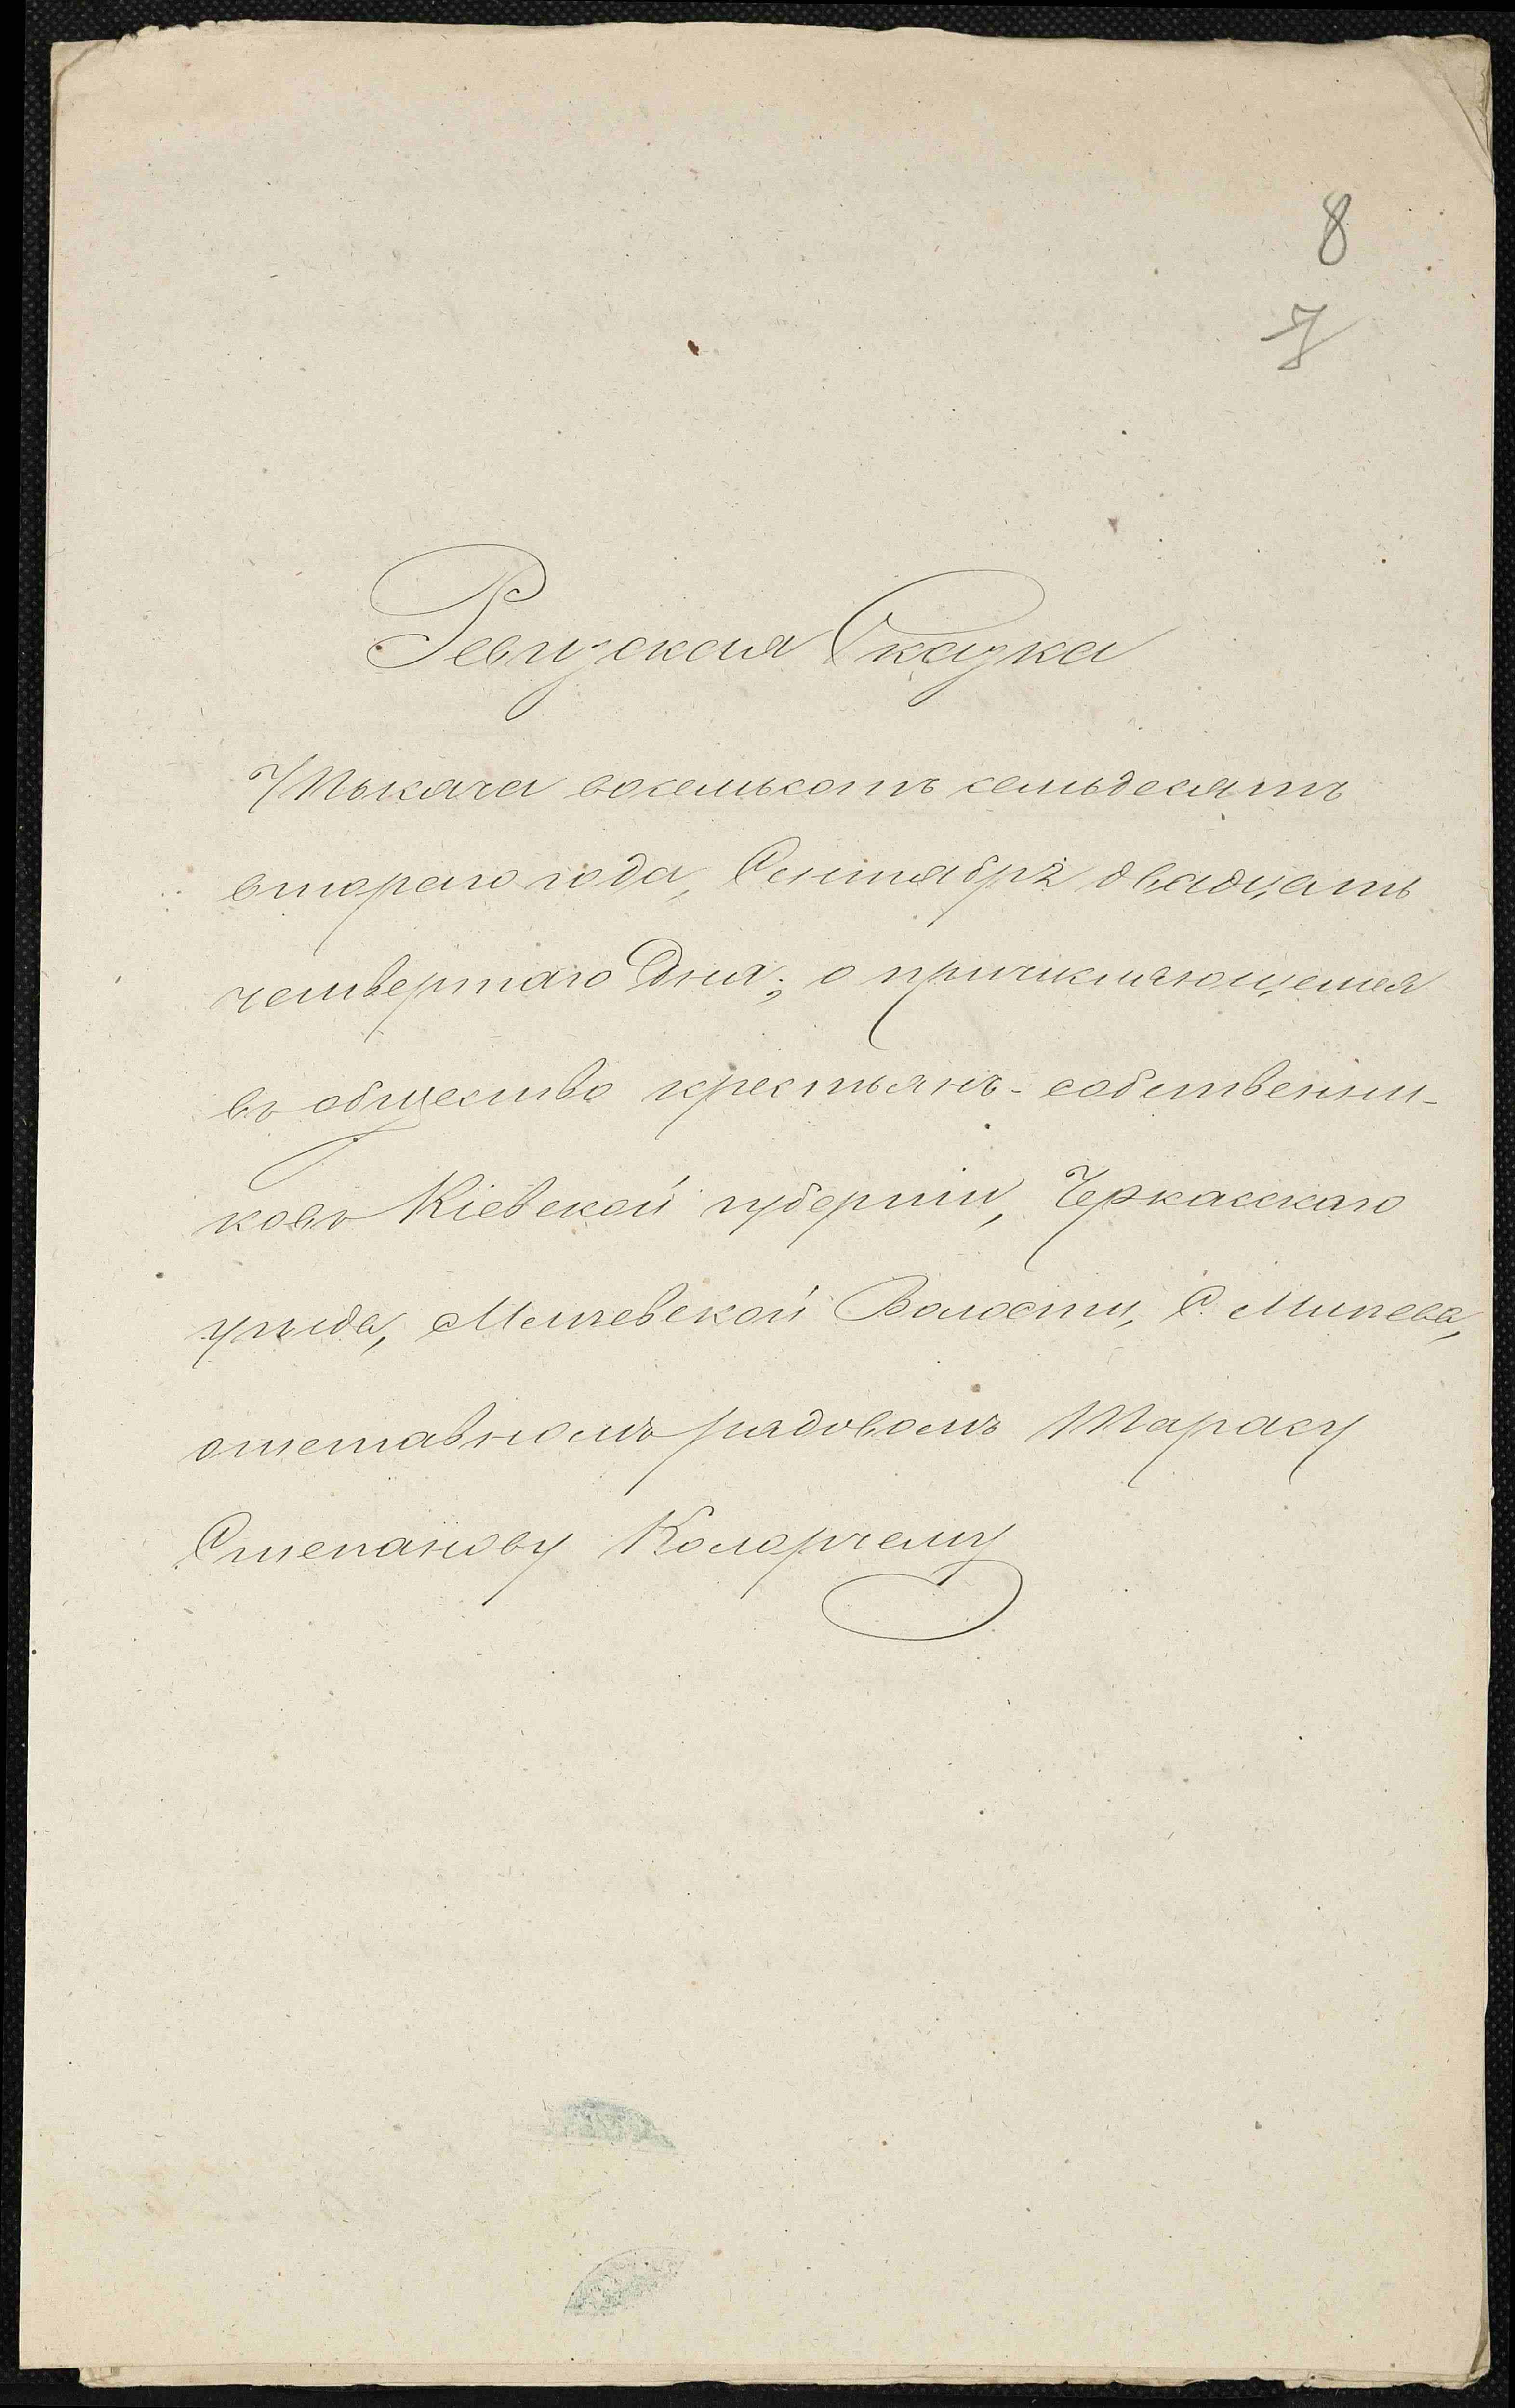 8
7
Ревизская Сказка
Тысяча восемьсотъ семьдесятъ
втораго года, Сентября двадцать
четвертаго Дня; о причисляющемся
въ общество крестьянъ-собственни-
ковъ Кіевской губерніи, Черкасскаго
уѣзда, Мліевской Волости, С. Мліева,
отставномъ рядовомъ Тарасу
Степанову